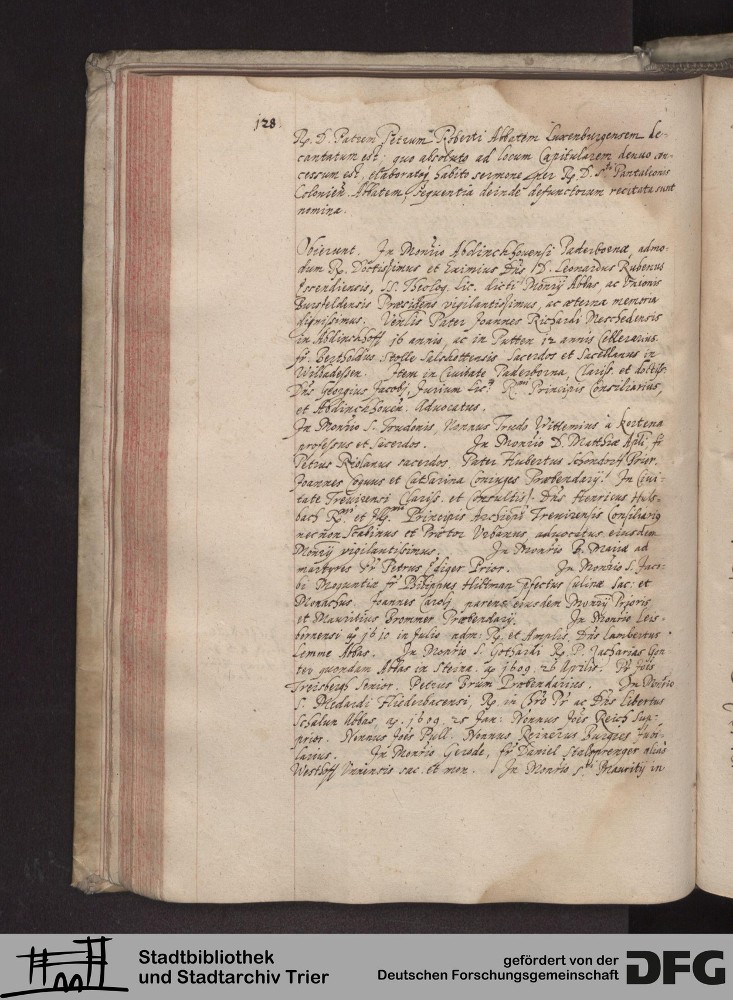 128.
R. D. Patrem Petrum Roberti Abbatem Luxenburgensem de-
cantatum est; quo absoluto ad locum Capitularem denuo con-
cessum est, habito sermone per R. D. Sti Pantalionis
Colonien. Abbatem, sequentia deinde defunctorum recitata sunt
nomina.
Obierunt. In Monrio Abdinckhovensi Paderbornæ admo-
dum R. Doctissimus et Eximius Dns D. Leonardus Rubenus
Essendiensis, SS. Theolog. Lic. dicti Monrij Abbas, ac Unionis
Bursfeldensis Præsidens vigilantissimus, ac æterna memoria
dignissimus. Venlis Pater Joannes Richardi Meschedensis
in Abdinckhoff 16 annis, ac in Putten 12 annis Cellerarius.
fr. Bertholdus Stolle Salchottensis Sacerdos et Sacellanus in
Willedessen. Item in Civitate Paderborna, Clariss. et doctiss.
Dns Georgius Jacobj, Jurium Lic. Rmi Principis Consiliarius,
et Abdinckhoven. Advocatus.
In Monrio S. Trudonis, Nonnus Trudo Wittemius à kertena
professus et Sacerdos. In Monrio D. Matthiæ Apli fr.
Petrus Riolanus sacerdos. Pater Hubertus Schondorff Prior.
Joannes et Catharina Coniuges Præbendarij. In Civi-
tate Trevirensi Clariss. et Consultiss. Dns Henricus Huls-
bach Rmi et Illmi Principis Archiepi Trevirensis Consiliarius
necnon Scabinus et Prætor Urbanus, advocatus eiusdem
Monrij vigilantissimus. In Monrio B. Mariæ ad
martyres Fr. Petrus Ediger Prior. In Monrio S. Jaco-
bi Maguntiæ fr. Philippus Hiltman præfectus Culinæ sac: et
Monachus. Joannes Carolj parens eiusdem Monrij Prioris
et Mauritius Brommer Præbendarij. In Monrio Leis-
bornensi aº 1610 in Julio nom: R. et Amplis. Dns Lambertus
Lemme Abbas. In Monrio S. Gothardi R. P. Jacharias Gun-
ter quondam Abbas in Steina. aº 1609. 26 Aprilis. Fr. Jois
Treisbergh Senior. Petrus Brum Præbendarius. In Monrio
S. Medardi R. in Chro Pr ac Dns Libertus
Schalun Abbas aº. 1609. 25 Jan: Nonnus Jois Reich Sup-
prior. Nonnus Jois Pull. Nonnus Reinerus Burgies Jubi-
larius. In Monrio Gerode, fr. Daniel Stalsprenger alias
Westhoff Unnensis sac. et mon. In Monrio Sti Mauritij in
Stadtbibliothek
und Stadtarchiv Trier
gefördert von der
Deutschen Forschungsgemeinschaft
DFG